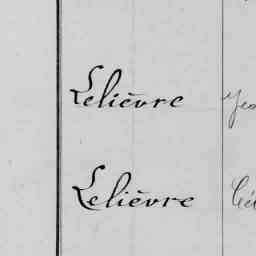 Lelièvre
Lelièvre